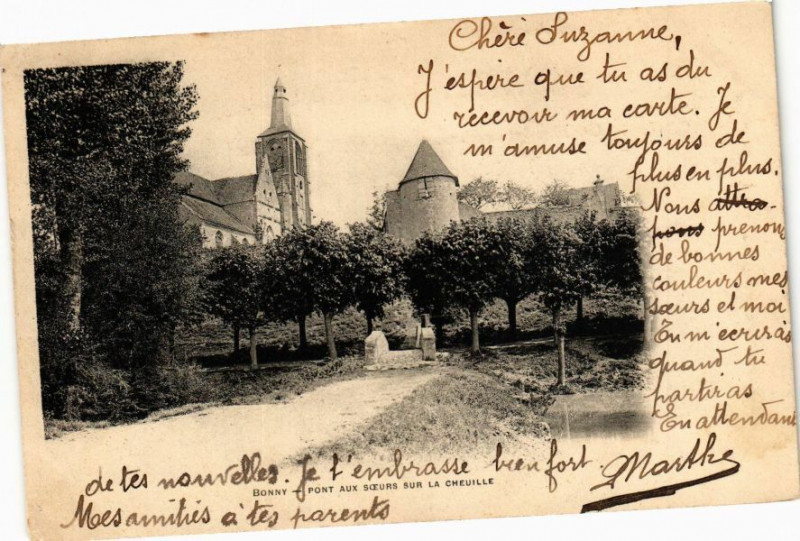 Chère Suzanne,
J'espère que tu as du
recevoir ma carte. Je
m'amuse toujours de
plus en plus.
Nous attra-
pons prenons
de bonnes
couleurs mes
sœurs et moi
Tu m'ecriras
quand tu
partiras
En attendant
de tes nouvelles. Je t'embrasse bien fort. Marthe
BONNY — PONT AUX SŒURS SUR LA CHEUILLE
Mes amitiés à tes parents